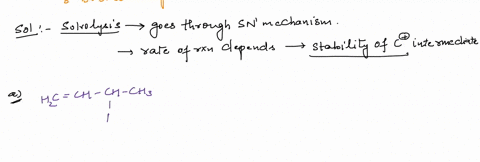 Sol:- Solvolysis → goes through SN¹ mechanism.
→ rate of rxn depends → stability of C⊕ intermediate
a) H₂C = CH - CH - CH₃